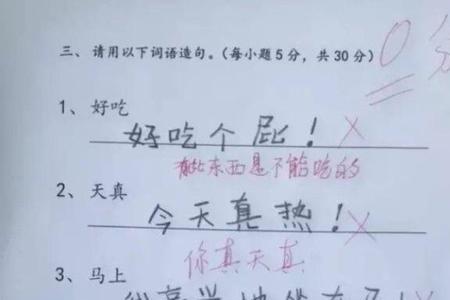 三、请用以下词语造句。（每小题5分，共30分）
0分
1、好吃
好吃个屁！
有些东西是不能吃的
2、天真
今天真热！
你真天真
3、马上